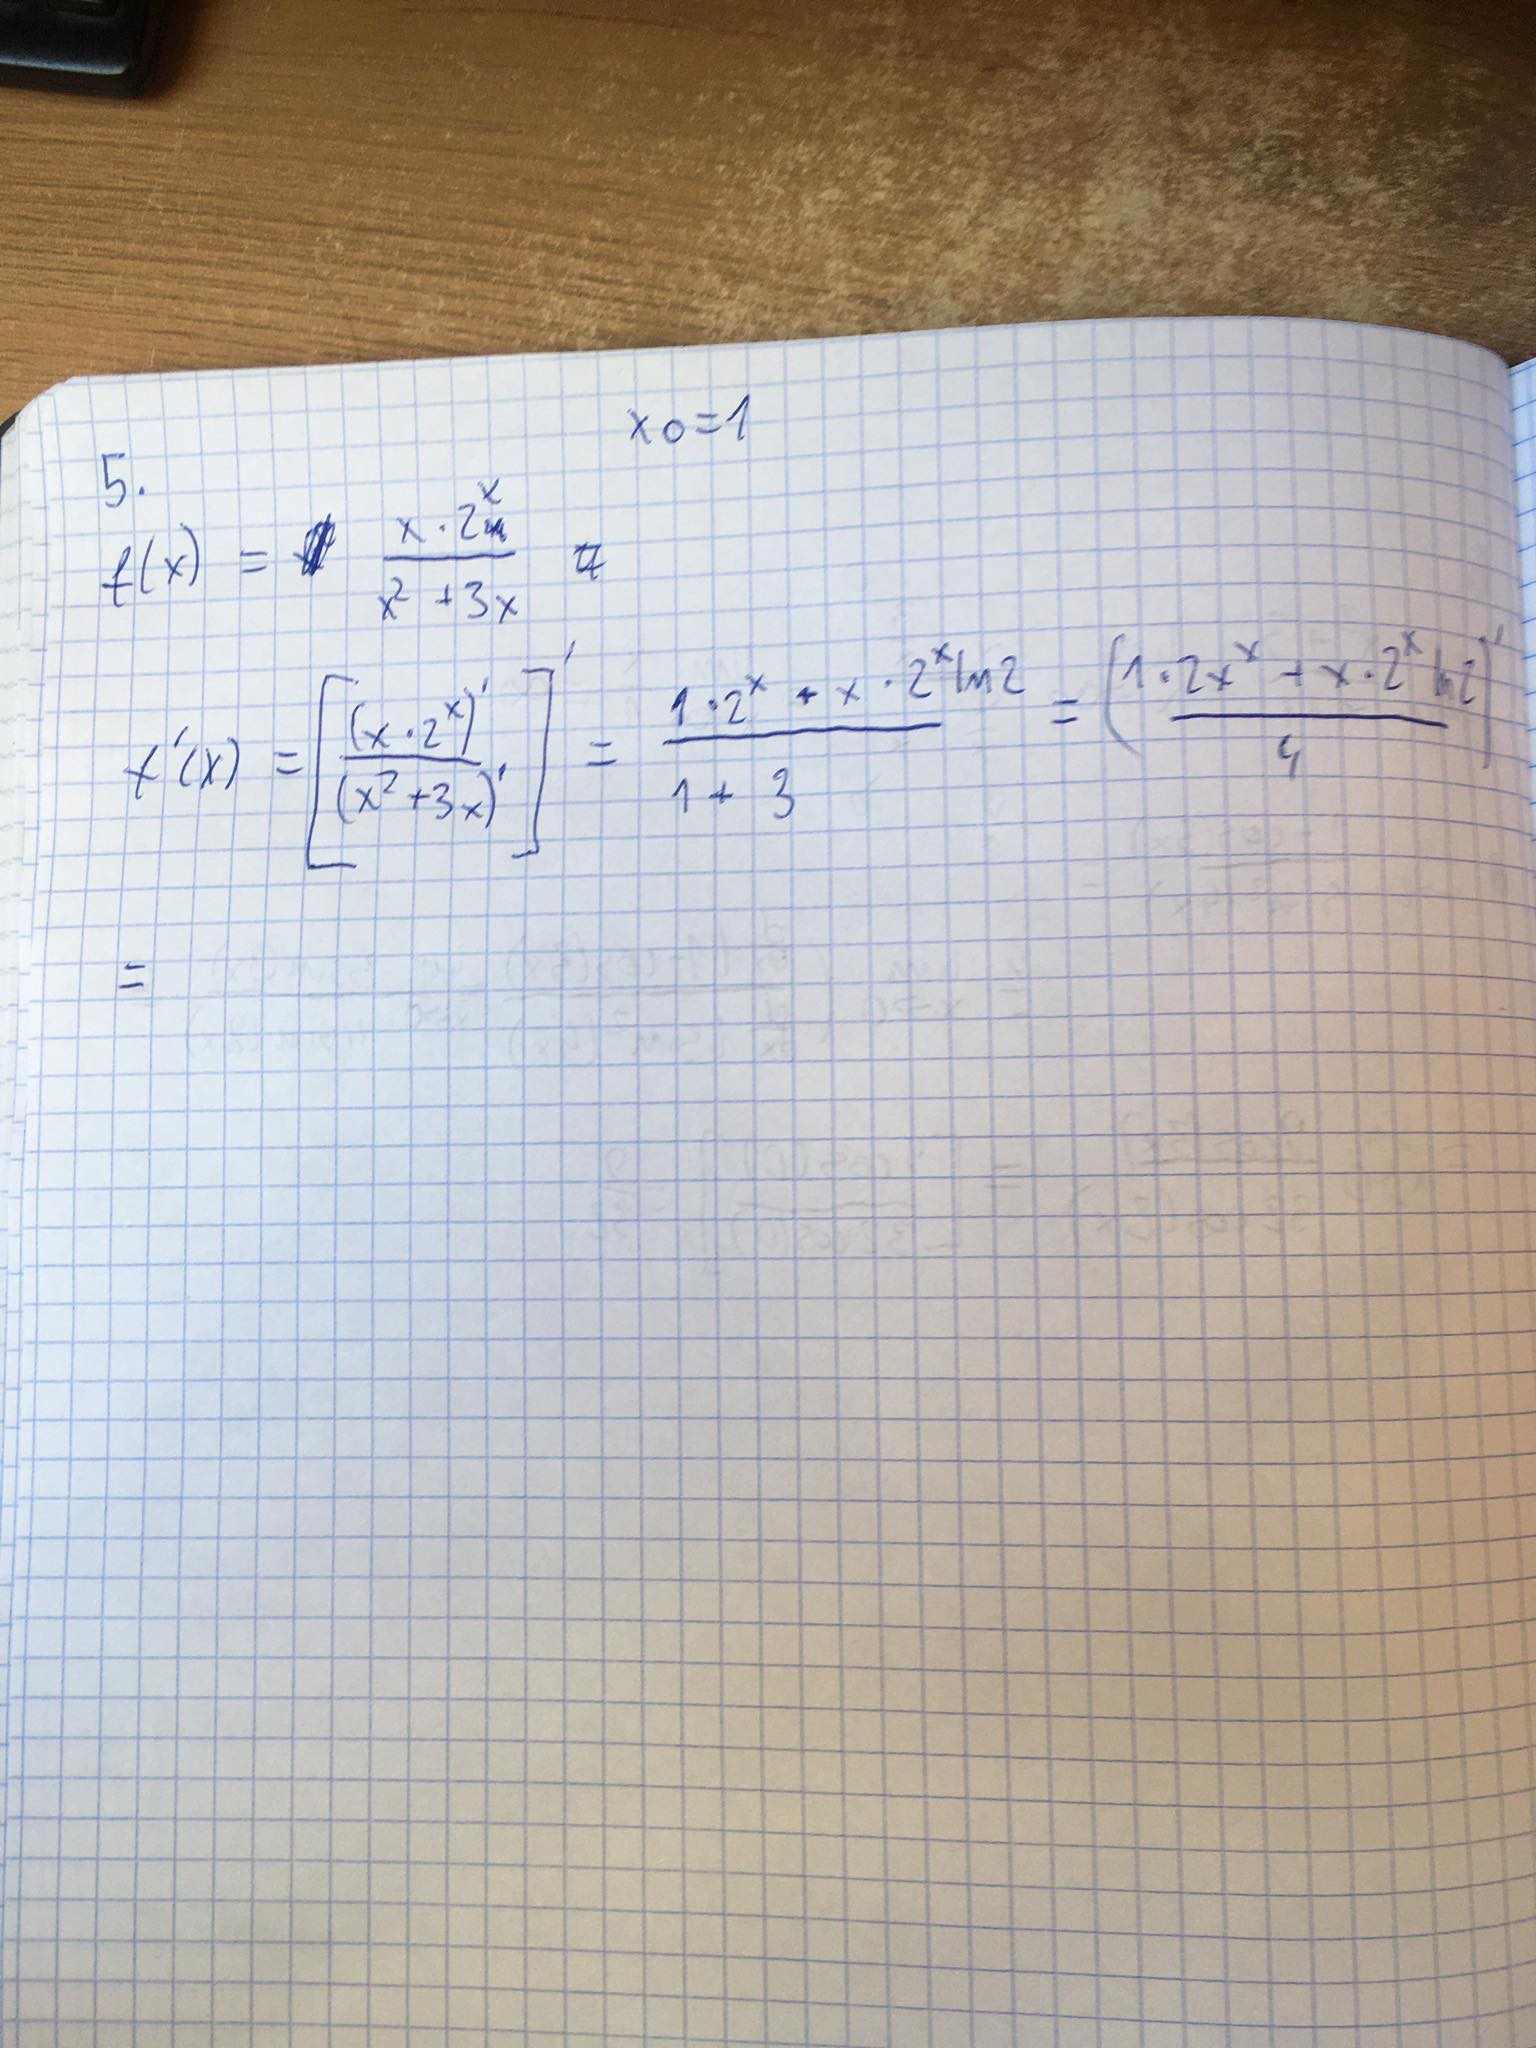 x₀=1
5.
f(x) = x · 2ˣ / x² + 3x
f'(x) = [(x · 2ˣ)' / (x² + 3x)']' = 1 · 2ˣ + x · 2ˣ ln2 / 1 + 3 = (1 · 2xˣ + x · 2ˣ ln2 / 4)'
=